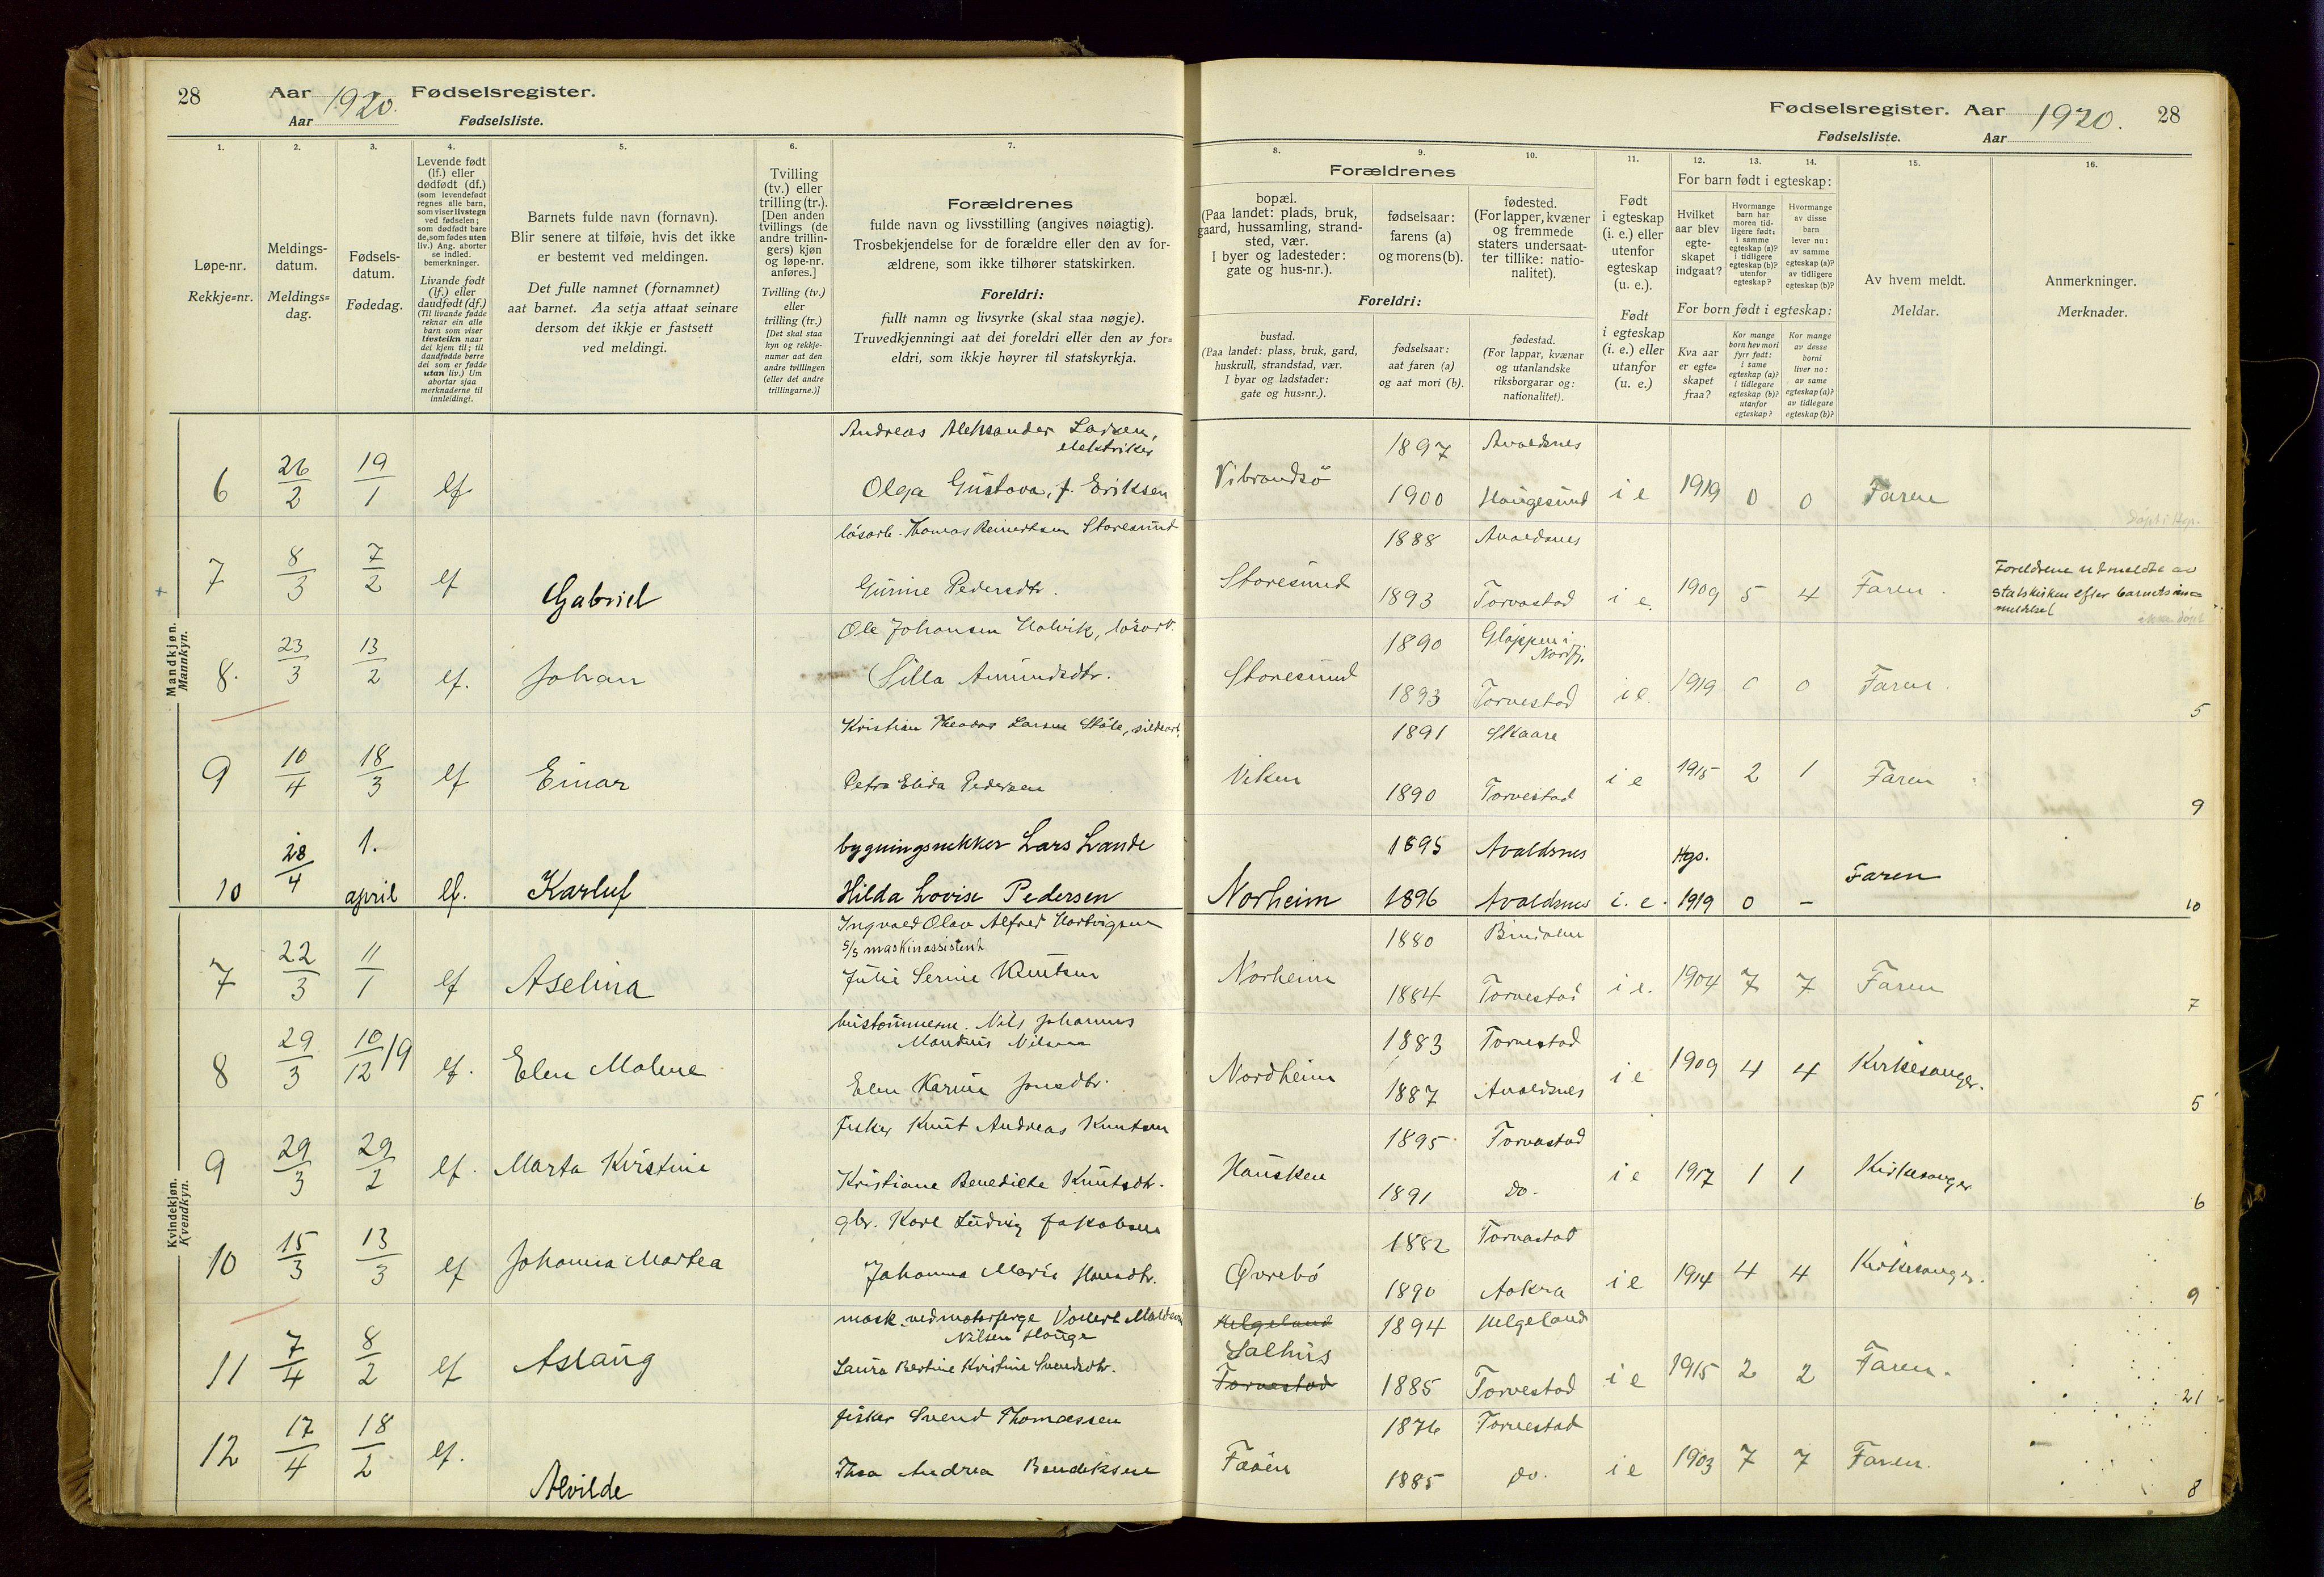 28
Aar 1920. Fødselsregister.
Aar Fødselsliste.
1. 2. 3. 4. 5. 6. 7.
Løpe-nr.
Rekkje=nr.
Meldings-
datum.
Meldings=
dag.
Fødsels-
datum.
Fødedag.
Levende født
(lf.) eller
dødfødt (df.)
(som levendefødt
regnes alle barn,
som viser livstegn
ved fødselen;
som dødfødt bare
de, som fødes uten
liv.) Ang. aborter
se indled.
bemerkninger.
Livande født
(lf.) eller
daudfødt (df.)
(Til livande fødde
reknar ein alle
barn som viser
livsteikn naar
dei kjem til; til
daudfødde berre
dei som er fødde
utan liv.) Um
abortar sjaa
merknaderne til
innleidingi.
Barnets fulde navn (fornavn).
Blir senere at tilføie, hvis det ikke
er bestemt ved meldingen.
Det fulle namnet (fornamnet)
aat barnet. Aa setja attaat seinare
dersom det ikkje er fastsett
ved meldingi.
Tvilling
(tv.) eller
trilling (tr.).
[Den anden
tvillings (de
andre trillin-
gers) kjøn
og løpe-nr.
anføres.]
Tvilling (tv.)
eller
trilling (tr.)
[Det skal staa
kyn og rekkje-
numer aat den
andre tvillingen
(eller dei andre
trillingarne.)]
Forældrenes
fulde navn og livsstilling (angives nøiagtig).
Trosbekjendelse for de forældre eller den av for-
ældrene, som ikke tilhører statskirken.
Foreldri:
fullt namn og livsyrke (skal staa nøgje).
Truvedkjenningi aat dei foreldri eller den av for=
eldri, som ikkje høyrer til statskyrkja.
Mandkjøn.
Mannkyn.
Andreas Aleksander Larsen,
elektriker
6 26/2 19/1 lf Olga Gustava, f. Eriksen
løsarb. Thomas Reinertsen Storesund
7 8/3 7/2 lf Gabriel Gurine Pedersdtr.
Ole Johansen Halvik, løsarb.
8. 23/3 13/2 lf. Johan Silla Amundsdtr.
Kristian Theodor Larsen
9 10/4 18/3 lf Einar Petra Elida Pedersen
bygningsnekker Lars Lande
10 28/4 1. april lf. Karluf Hilda Lovise Pedersen
Kvindekjøn.
Kvendkyn.
Ingvald Olav Alfred Hartvigsen
s/s maskinassistent
7 22/3 11/1 lf Aselina Julie Serine Knutsen
Nils Johannes
Nilsen
8 29/3 10/12 19 lf. Elen Malene Elen Karine Jonsdtr.
fisker Knut Andreas Knutsen
9 29/3 29/2 lf. Marta Kirstine Kristiane Benedikte Knutsdtr.
gbr. Karl Ludvig Jakobsen
10 15/3 13/3 lf Johanna Martea Johanna Marie
mask. ved motorferge
Nilsen Hauge
11 7/4 8/2 lf Aslaug Laura Bertine Kristine Svendsdtr.
fisker Svend Thomassen
12 17/4 18/2 lf. Alvilde Thea Andrea Bendiksen
Fødselsregister. Aar 1920. 28
Fødselsliste. Aar
8. 9. 10. 11. 12. 13. 14. 15. 16.
Forældrenes
bopæl.
(Paa landet: plads, bruk,
gaard, hussamling, strand-
sted, vær.
I byer og ladesteder:
gate og hus-nr.).
fødselsaar:
farens (a)
og morens (b).
fødested.
(For lapper, kvæner
og fremmede
staters undersaat-
ter tillike: natio-
nalitet).
Foreldri:
bustad.
(Paa landet: plass, bruk, gard,
huskrull, strandstad, vær.
I byar og ladstader:
gate og hus=nr.).
fødselsaar:
aat faren (a)
og aat mori (b).
fødestad.
(For lappar, kvænar
og utanlandske
riksborgarar og:
nationalitet).
Født
i egteskap
(i. e.) eller
utenfor
egteskap
(u. e.).
Født
i egteskap
(i. e.) eller
utanfor
(u. e.)
For barn født i egteskap:
Hvilket
aar blev
egte-
skapet
indgaat?
Hvormange
barn har
moren tid-
ligere født:
i samme
egteskap (a)?
i tidligere
egteskap (b)?
utenfor
egteskap?
Hvormange
av disse
barn
lever nu:
av samme
egteskap (a)?
av tidligere
egteskap (b)?
For born født i egteskap:
Kva aar
er egte=
skapet
fraa?
Kor mange
born hev mori
fyrr født:
i same
egteskap (a)?
i tidlegare
egteskap (b)?
utanfor
egteskap?
Kor mange
av desse
borni
liver no:
av same
egteskap (a)?
av tidlegare
egteskap (b)?
Av hvem meldt.
Meldar.
Anmerkninger.
Merknader.
1897 Avaldsnes
Vibrandsö 1900 Haugesund i e 1919 0 0 Faren
döpt i Hgs.
1888 Avaldsnes
Storesund 1893 Torvastad i e. 1909 5 4 Faren.
Foreldrene utmeldt av
statskirken efter barnets inn-
meldelse
ikke döpt
1890 Gloppen i
Nordfj.
Storesund 1893 Torvestad i e. 1919 0 0 Faren.
5
1891 Skaare
Viken 1890 Torvestad i e 1915 2 1 Faren
9
1895 Avaldsnes Hgs.
Norheim 1896 Avaldsnes i. e. 1919 0 – Faren
10
1880 Bindalen
Norheim 1884 Torvestad i e. 1904 7 7 Faren
7
1883 Torvestad
Nordheim 1887 Avaldsnes i e 1909 4 4 Kirkesanger.
5
1895 Torvastad
Hausken 1891 do. i e 1917 1 1 Kirkesanger
6
1882 Torvastad
Øvrebö 1890 Aakra i e 1914 4 4 Kirkesanger.
9
Helgeland 1894 Helgeland
Salhus
Torvestad 1885 Torvestad i e 1915 2 2 Faren.
21
1876 Torvestad
Faöen 1885 do. i e 1903 7 7 Faren.
8